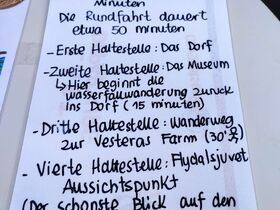 Minuten
Die Rundfahrt dauert
etwa 50 minuten
- Erste Haltestelle: Das Dorf
- Zweite Haltestelle: Das Museum
↳ Hier beginnt die
wasserfallwanderung zurück
ins Dorf (15 minuten)
- Dritte Haltestelle: Wanderweg
zur Vesteras Farm (30'
- Vierte Haltestelle: Flydalsjuvet
Aussichtspunkt
(Der schönste Blick auf den